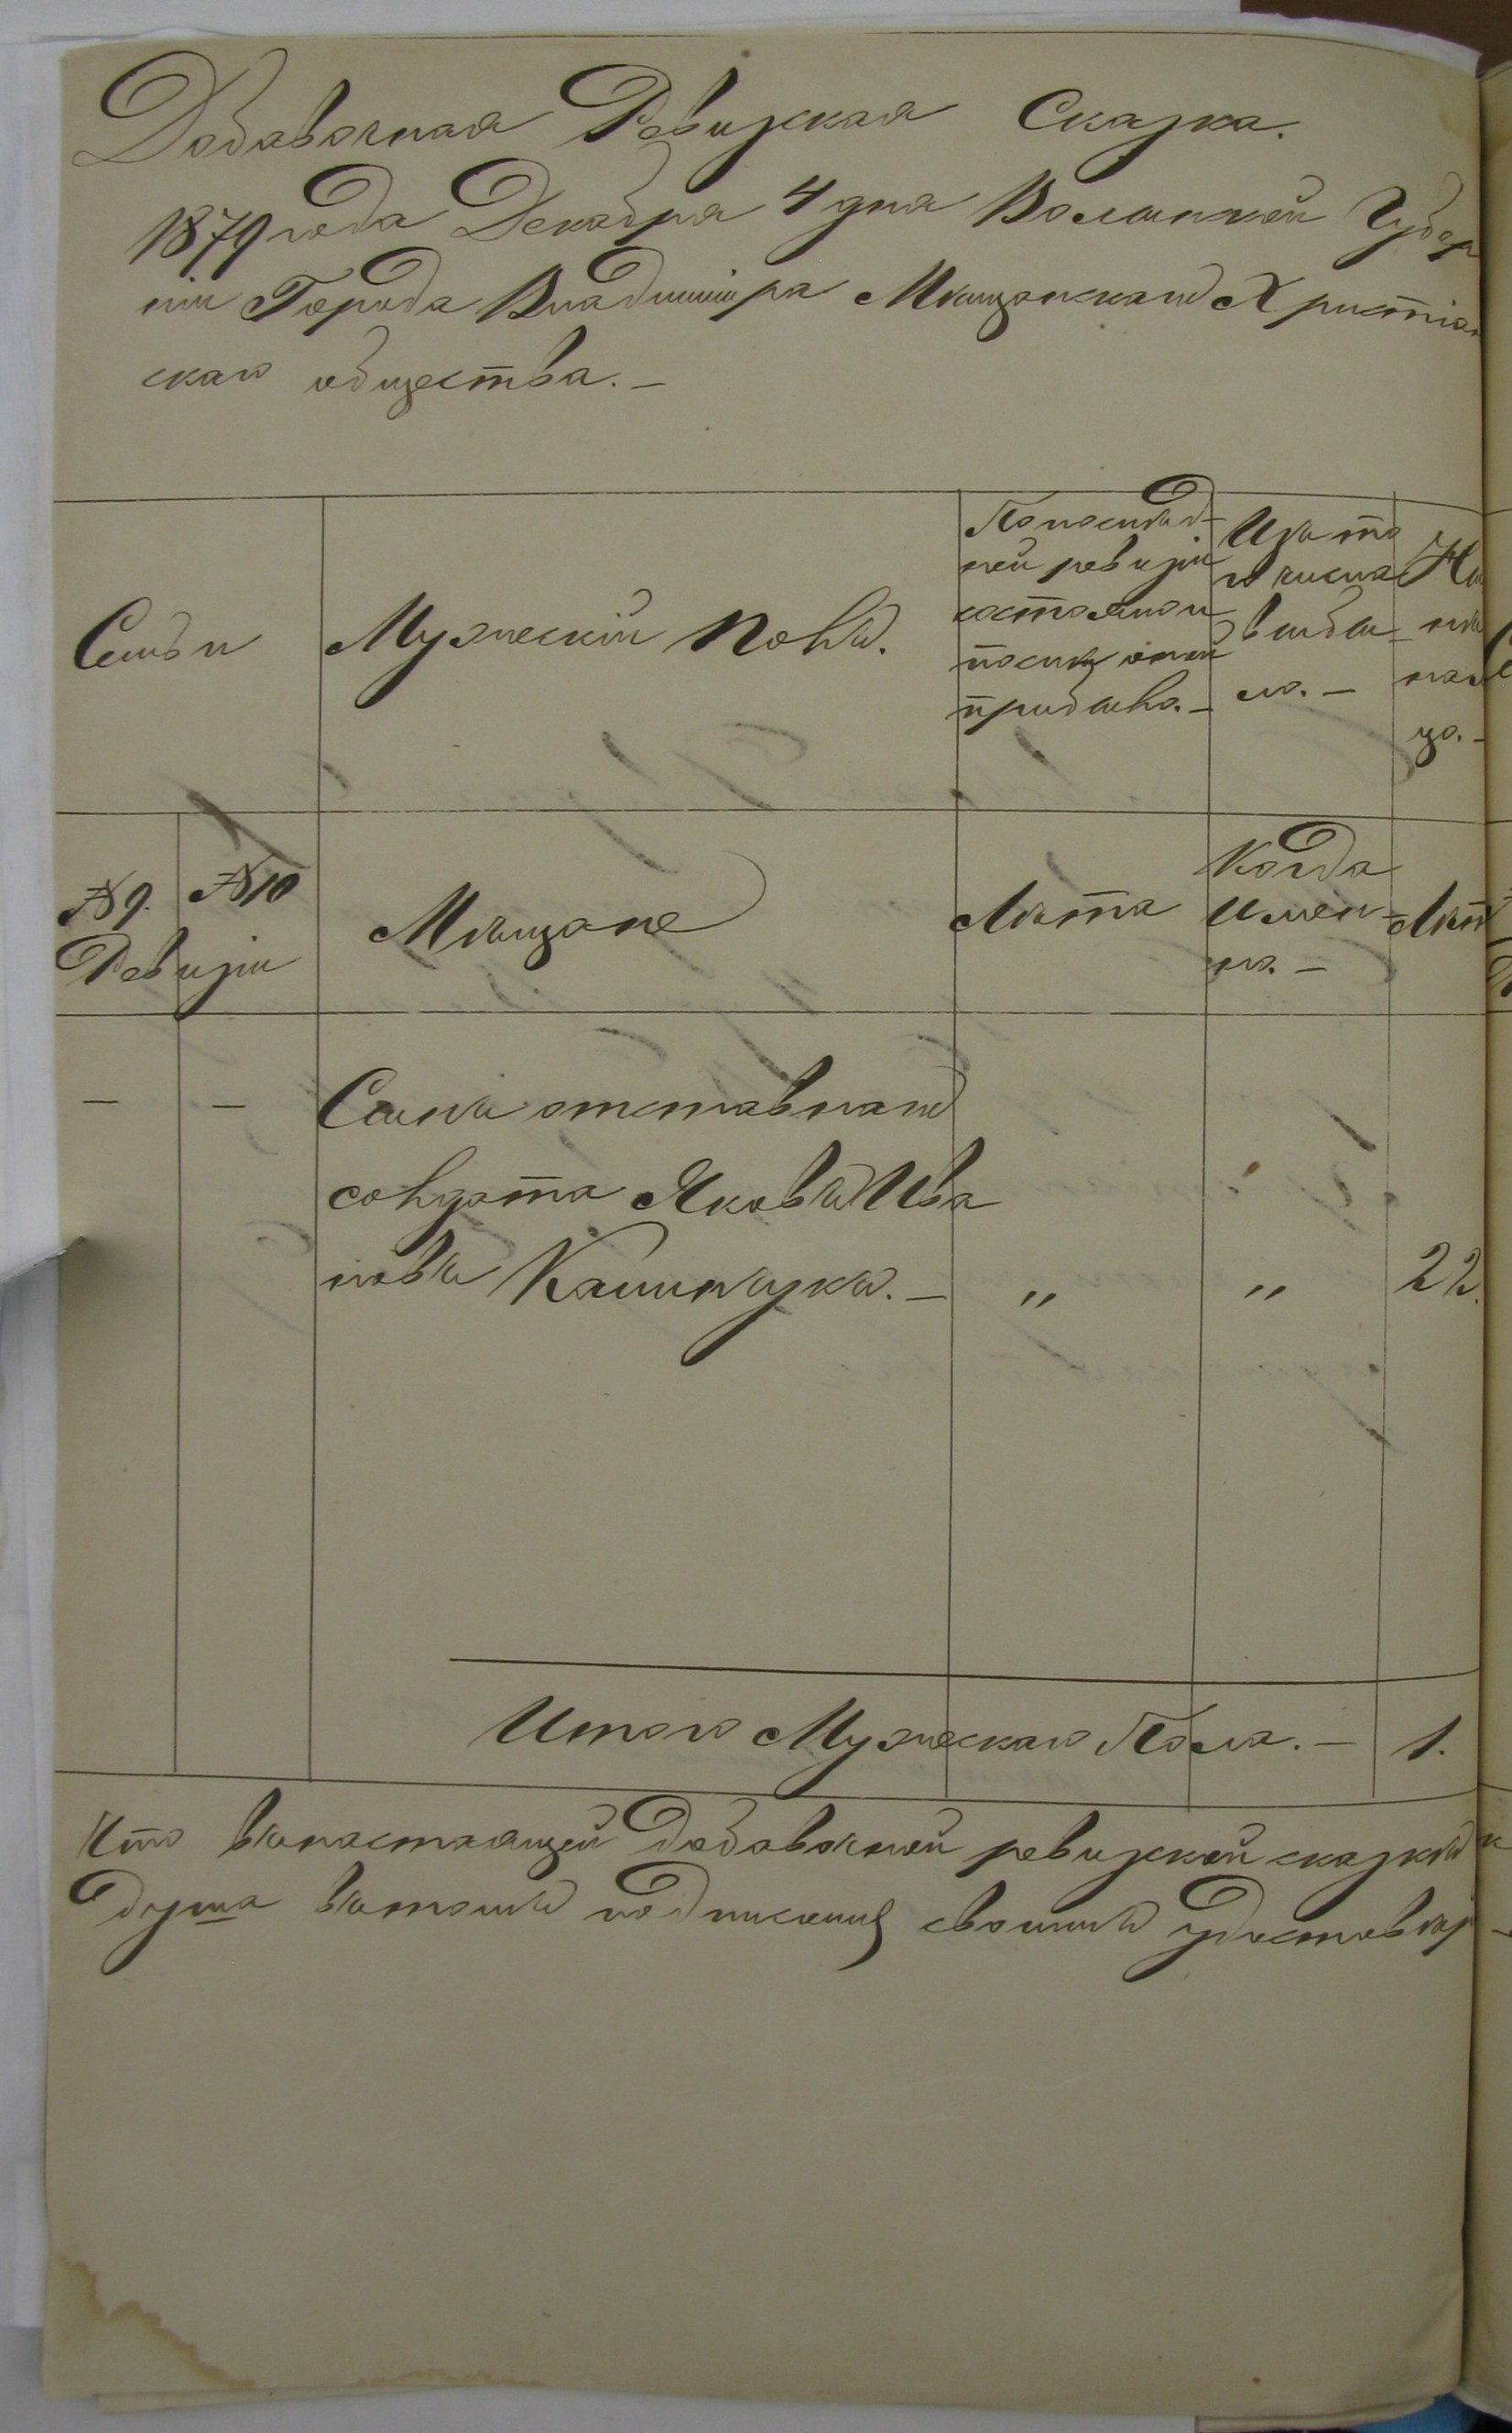 Добавочная Ревизская Сказка.
1879 года Декабря 4 дня Волынской Губер
нiи Города Владимiра Мѣщанскаго Христiан
скаго общества. —
Семьи
Мужескiй полъ.
По послѣд-
ней ревизiи
состояло и
послѣ оной
прибыло. —
Изъ то
го числа
выбы-
ло. —
Ны
нѣ
на ли
цо. —
№ 9. № 10
Ревизiи
Мѣщане
Лѣта
Когда
имен-
но. —
Лѣта
— — Сынъ отставнаго
солдата Яковъ Ива
новъ Калинчукъ. — „ „ 22.
Итого Мужескаго Пола. — 1.
Что въ настоящей добавочной ревизской сказкѣ
душа въ томъ подписомъ своимъ удостовѣр